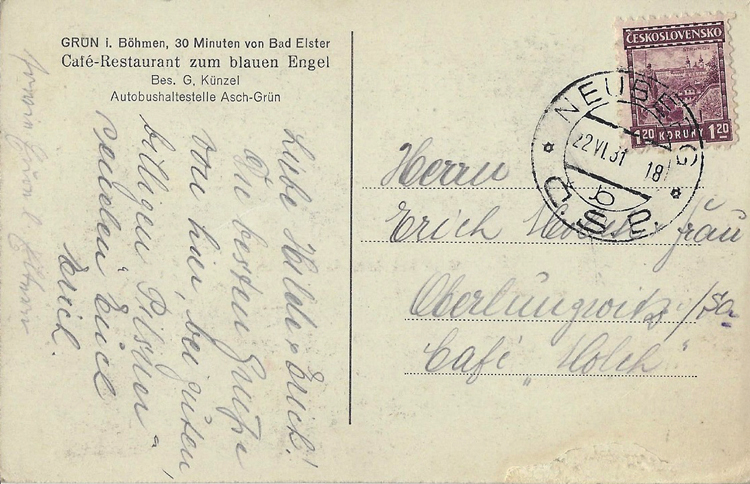 GRÜN i. Böhmen, 30 Minuten von Bad Elster
Café-Restaurant zum blauen Engel
Bes. G. Künzel
Autobushaltestelle Asch-Grün
Liebe Hilde & Erich!
Die besten Grüße
von hier, bei guten,
billigen Pilsner"
senden Euch
Erich.
ČESKOSLOVENSKO
1.20 KORUNY 1.20
NEUBERG
22.VI.31 18
b
Č.S.P.
Herrn
Erich u. Frau
Oberlungwitz/Sa.
Café „Holch"